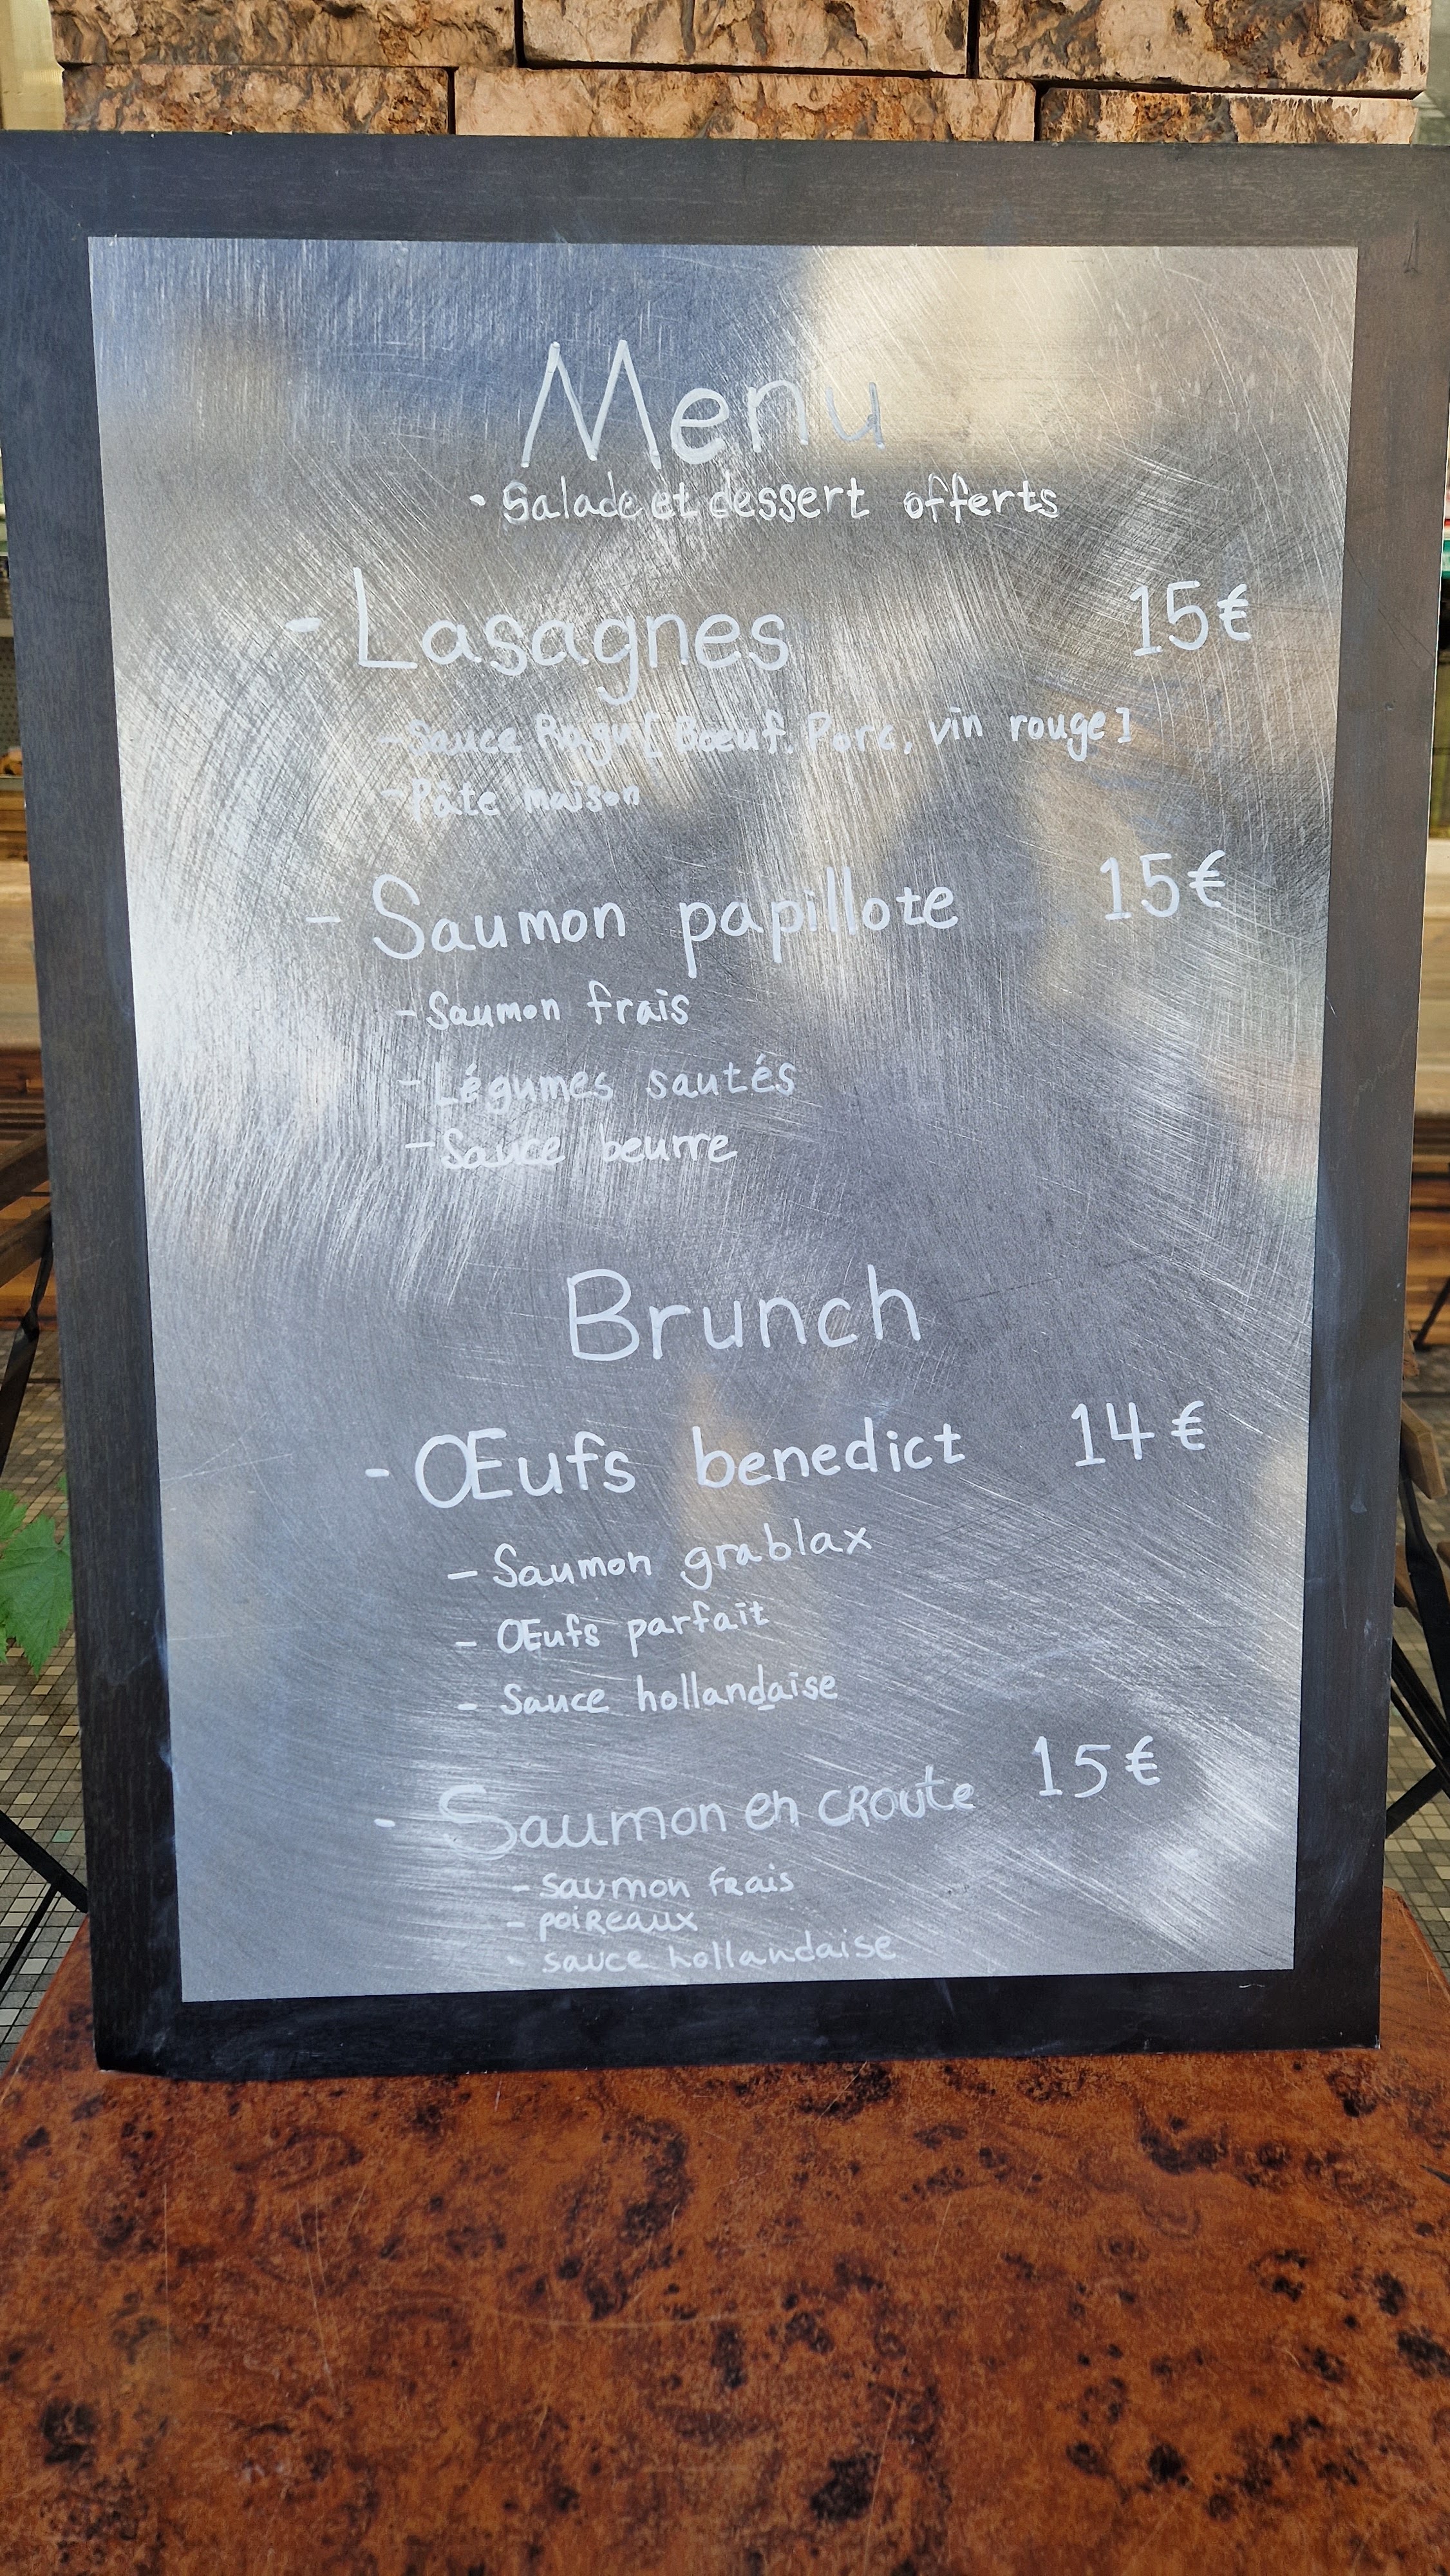 Menu
• Salade et dessert offerts
- Lasagnes 15€
- Sauce Ragu [Bœuf. Porc, vin rouge]
- Pâte maison
- Saumon papillote 15€
- Saumon frais
- Légumes sautés
- Sauce beurre
Brunch
- Œufs benedict 14€
- Saumon grablax
- Œufs parfait
- Sauce hollandaise
- Saumon en croute 15€
- saumon frais
- poireaux
- sauce hollandaise